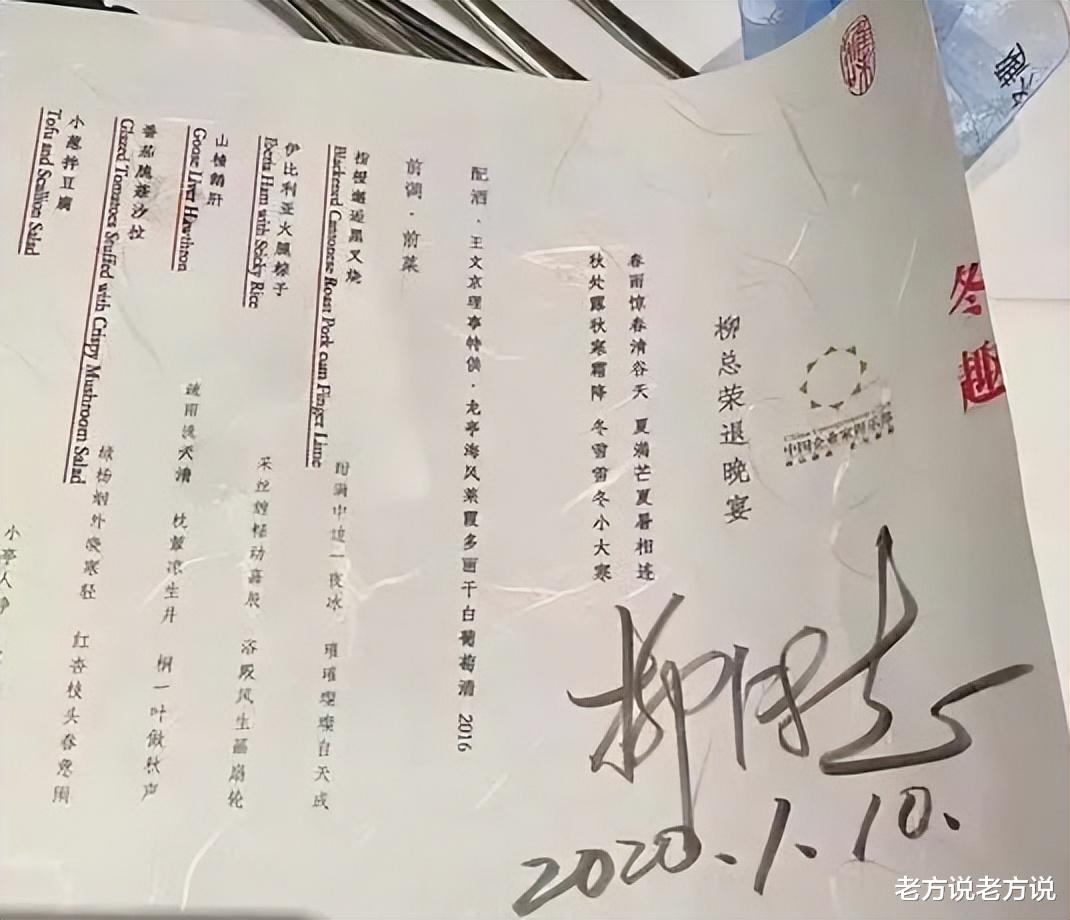 冬趣
中国企业家俱乐部
柳总荣退晚宴
春雨惊春清谷天 夏满芒夏暑相连
秋处露秋寒霜降 冬雪雪冬小大寒
配酒·王文京理事特供·龙亭海风莱霞多丽干白葡萄酒 2016
前调·前菜
指橙邂逅黑叉烧
Blackened Cantonese Roast Pork cum Finger Lime
一夜冰 璀璀璨璨自天成
伊比利亚火腿粽子
Iberia Ham with Sticky Rice
采丝缠糉动嘉辰 浴殿风生画扇轮
山楂鹅肝
Goose Liver Hawtheon
疏雨洗天清 枕簟凉生井 桐一叶做秋声
番茄脆菇沙拉
Glazed Tomatoes Stuffed with Crispy Mushroom Salad
绿杨烟外晓寒轻 红杏枝头春意闹
小葱拌豆腐
Tofu and Scallion Salad
小亭人静
柳传志
2020.1.10.
老方说老方说